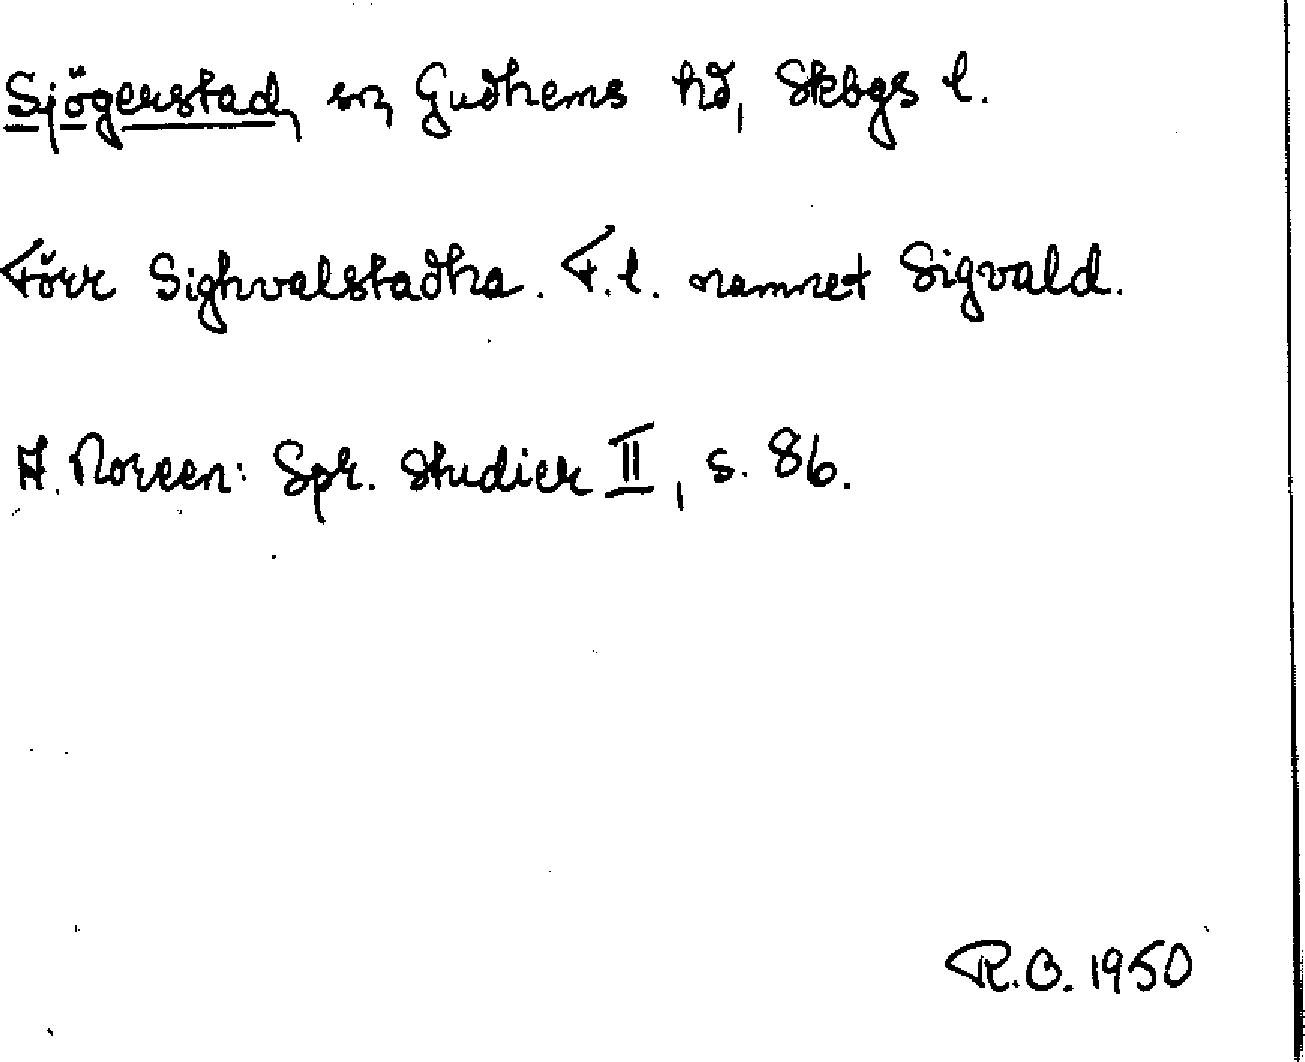 Sjögerstad, sn, Gudhems hd, Skbgs l.
Förr Sighvalstadha. F.l. namnet Sigvald.
A. Noreen: Spr. Studier II, s. 86.
R.O. 1950